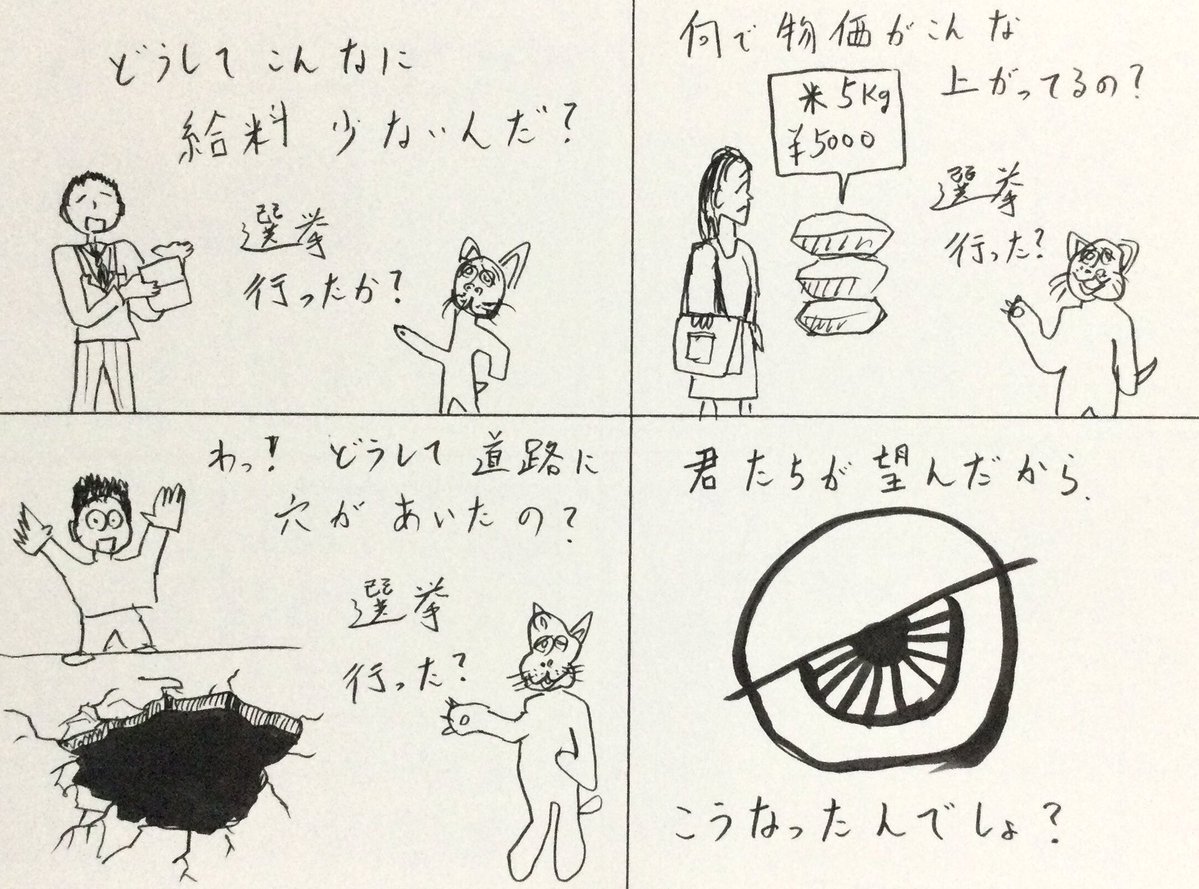 どうしてこんなに
給料少ないんだ?
選挙
行ったか?
何で物価がこんな
上がってるの?
米5Kg
¥5000
選挙
行った?
わっ! どうして道路に
穴があいたの?
選挙
行った?
君たちが望んだから、
こうなったんでしょ?